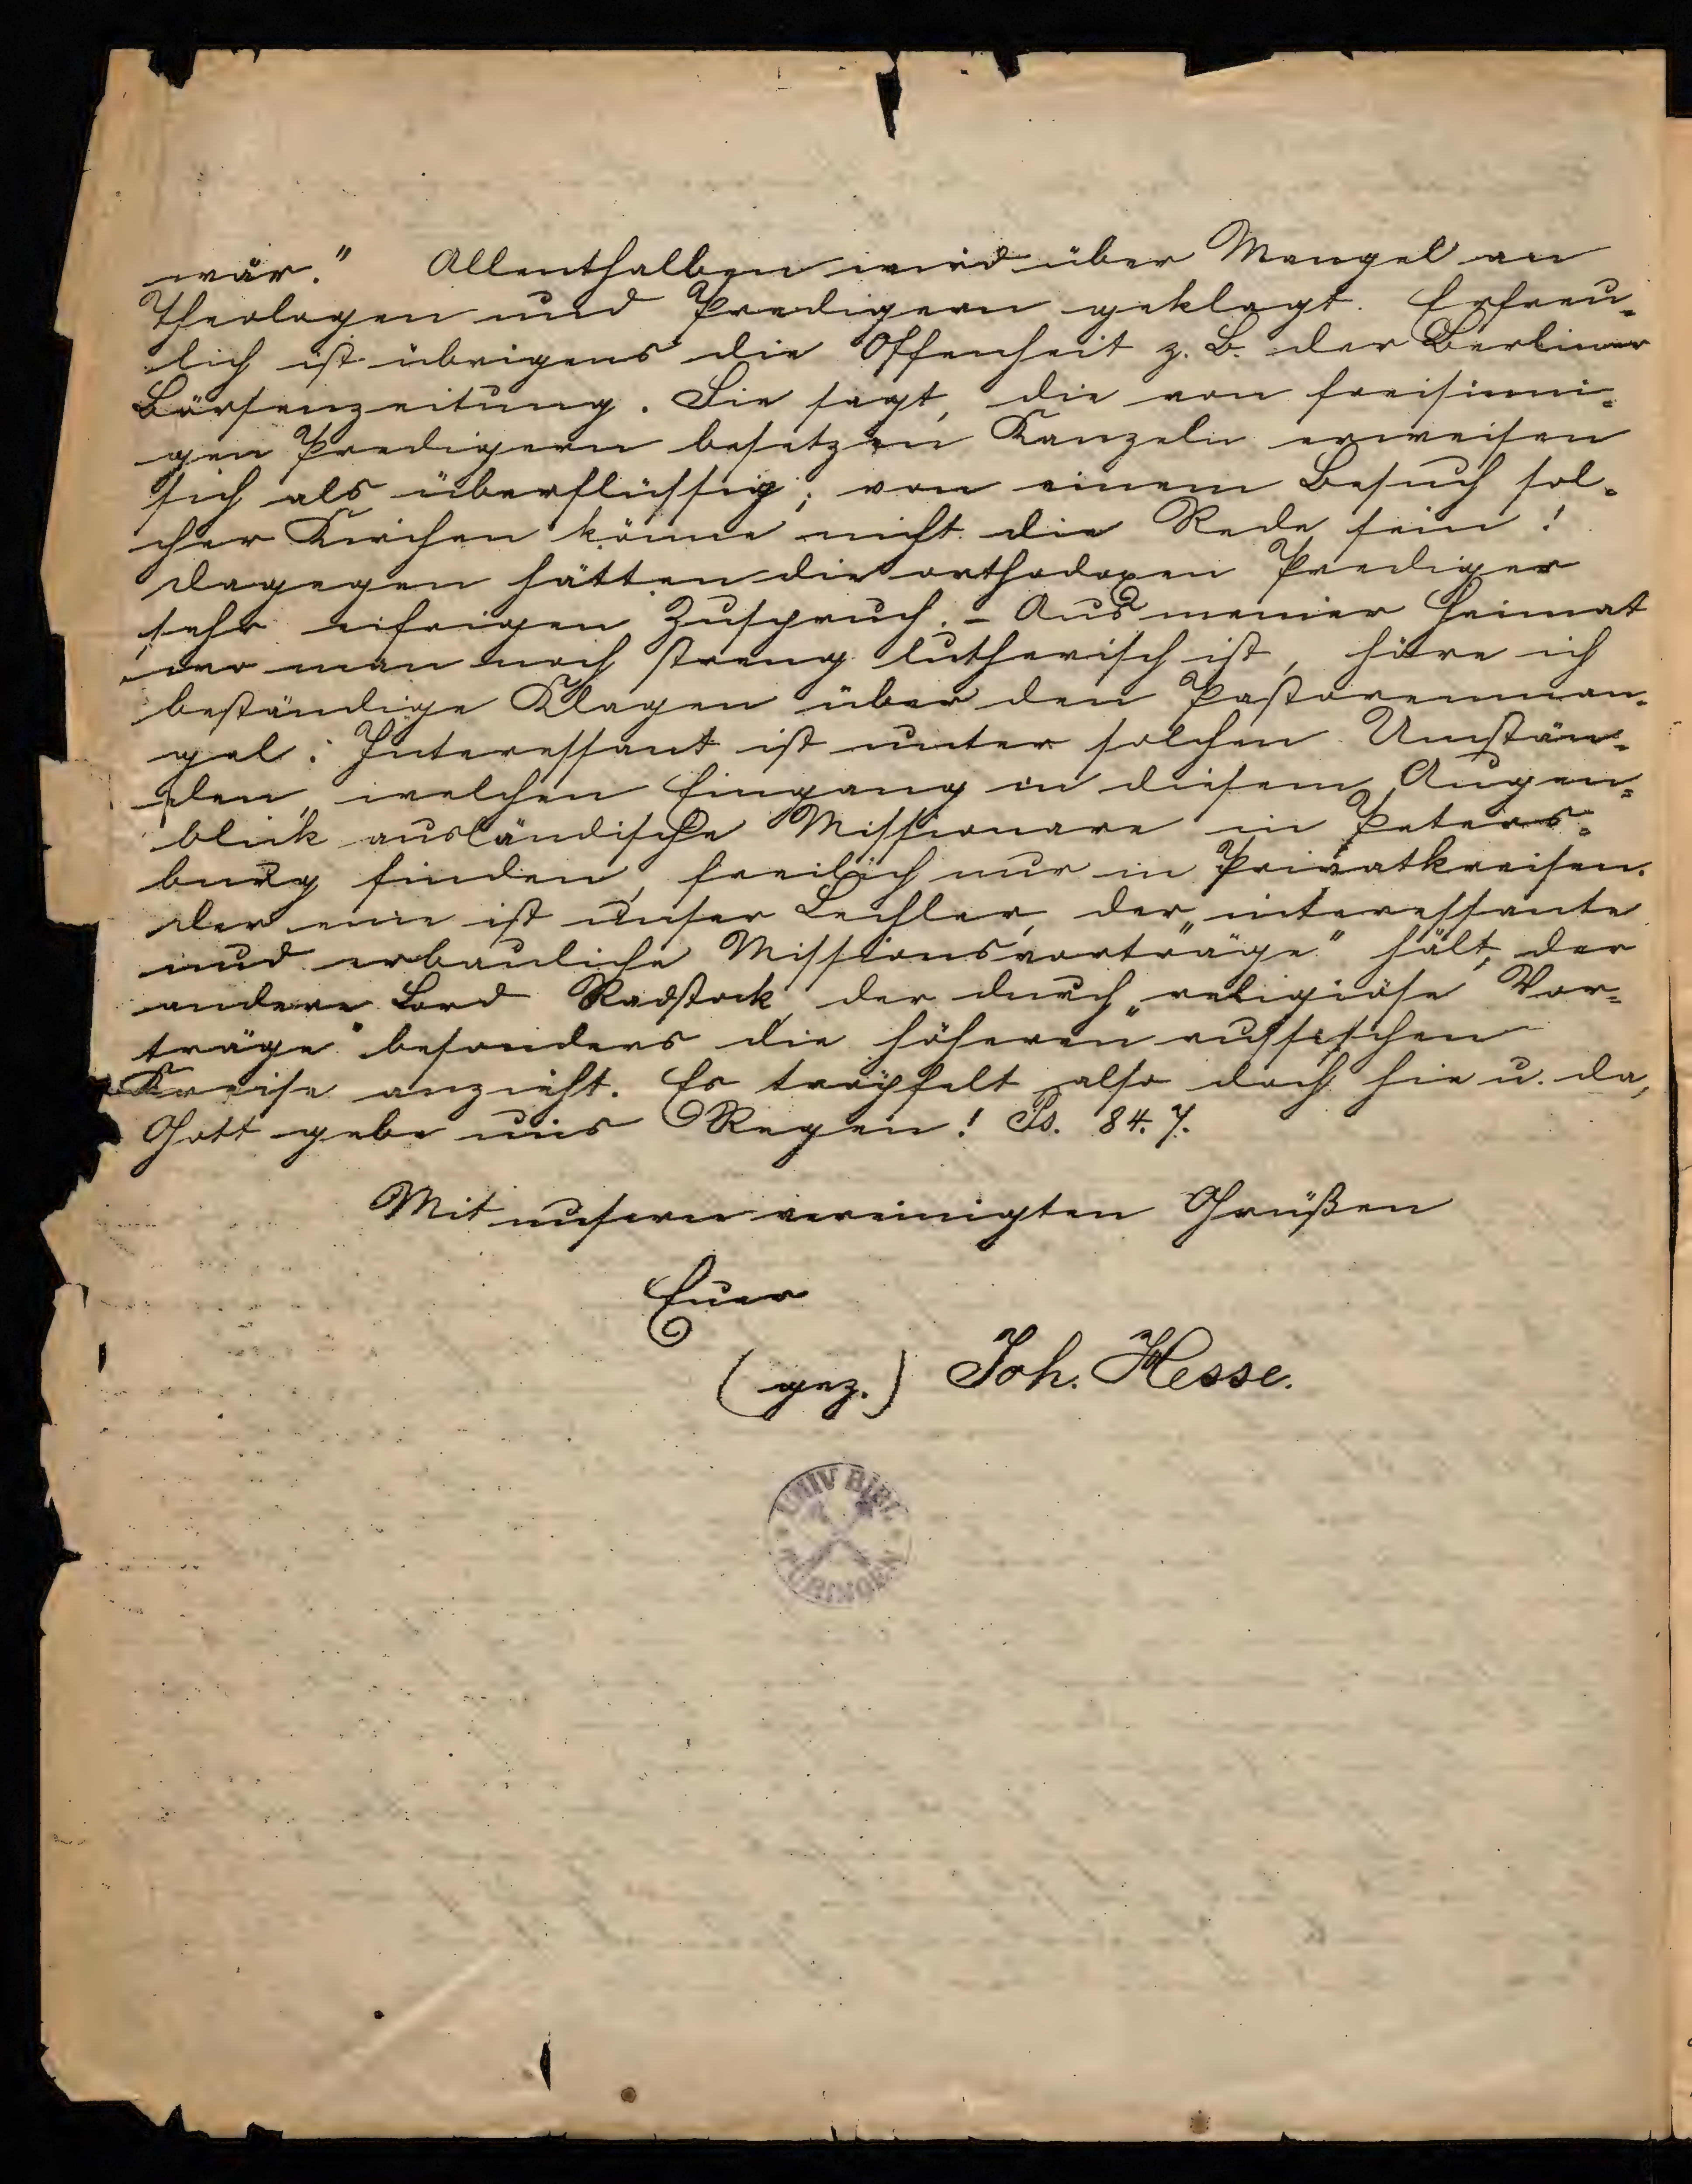 wär." Allenthalben wird über Mangel an
Theologen und Predigern geklagt. Erfreu-
lich ist übrigens die Offenheit z. B. der Berliner
Börsenzeitung. Sie sagt, die von freisinni-
gen Predigern besetzten Kanzeln erweisen
sich als überflüssig; von einem Besuch sol-
cher Kirchen könne nicht die Rede sein!
dagegen hätten die orthodoxen Prediger
sehr eifrigen Zuspruch. - Aus meiner Heimat
wo man noch streng lutherisch ist, höre ich
beständige Klagen über den Pastorenman-
gel. Interessant ist unter solchen Umstän-
den, welchen Eingang in diesem Augen-
blick ausländische Missionare in Peters-
burg finden, freilich nur in Privatkreisen.
der eine ist unser Lechler, der „interessante
und erbauliche Missionsvorträge" hält, der
andere Lord Radstock, der durch „religiöse Vor-
träge" besonders die höheren russischen
Kreise anzieht. Es tröpfelt also doch hie u. da,
Gott gebe uns Regen! Ps. 84.7.
Mit unseren vereinigten Grüßen
Euer
(gez.) Joh. Hesse.
UNIV BIBL
TÜBINGEN